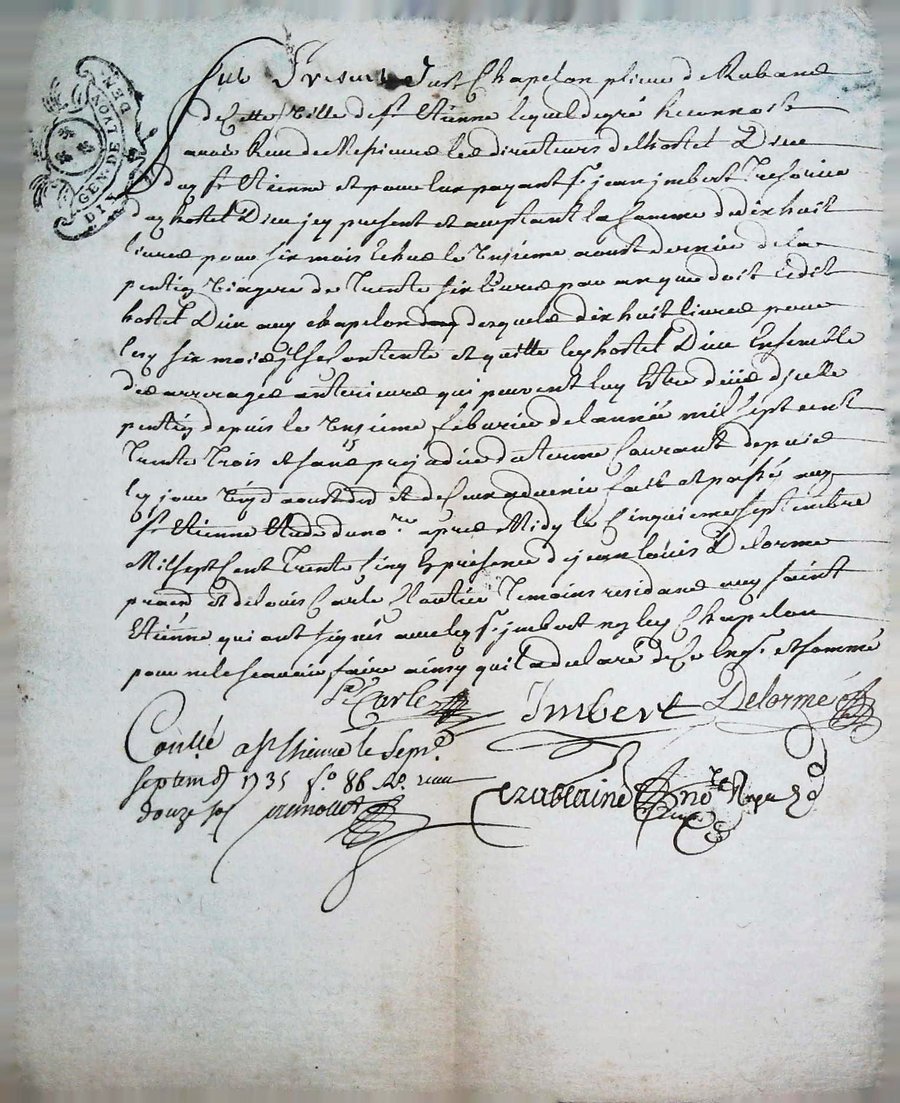 GEN. DE LYON
fut Present Just Chapelon plieur de Rubans
de Cette Ville de St. Etienne lequel de gré Reconnoit
avoir Reu de Messieurs les directeurs de lhostel Dieu
duy St. Etienne et pour eux payant Sr. jean jmbert Tresorier
duy hostel Dieu jcy present et aceptant la somme de dix huit
livres pour six mois echus le aoust dernier de la
pention viagere de Trente six livres par an que doit ledit
hostel Dieu auy chapelon desquels dix huit livres pour
lesy six mois jl se Contente et quitte ley hostel Dieu Ensemble
des arrerages anterieurs qui peuvent luy Estre düs djcelle
pention depuis le feburier de lannée mil sept cent
Trente Trois et sans prejudice du terme Courant depuis
ley jour d'aoust der et de Ceux a venir fait et passé auy
St. Etienne Etude du nore. apres Midy le Cinquieme septembre
Mil sept Cent Trente Cinq En presence de jean louis Delorme
pratn et de loüis Carle Cloutier Temoins residans auy saint
Etiénne qui ont signés avec ley Sr. jmbert non ley Chapelon
pour ne le scavoir faire ainsy quil a declaré de Ce Enqs. et sommé
Carle Imbert Delorme
Conllé a St Etienne le Sept.
septembre 1735 fo. 86 Ro. receu
douze sols
nore Royal